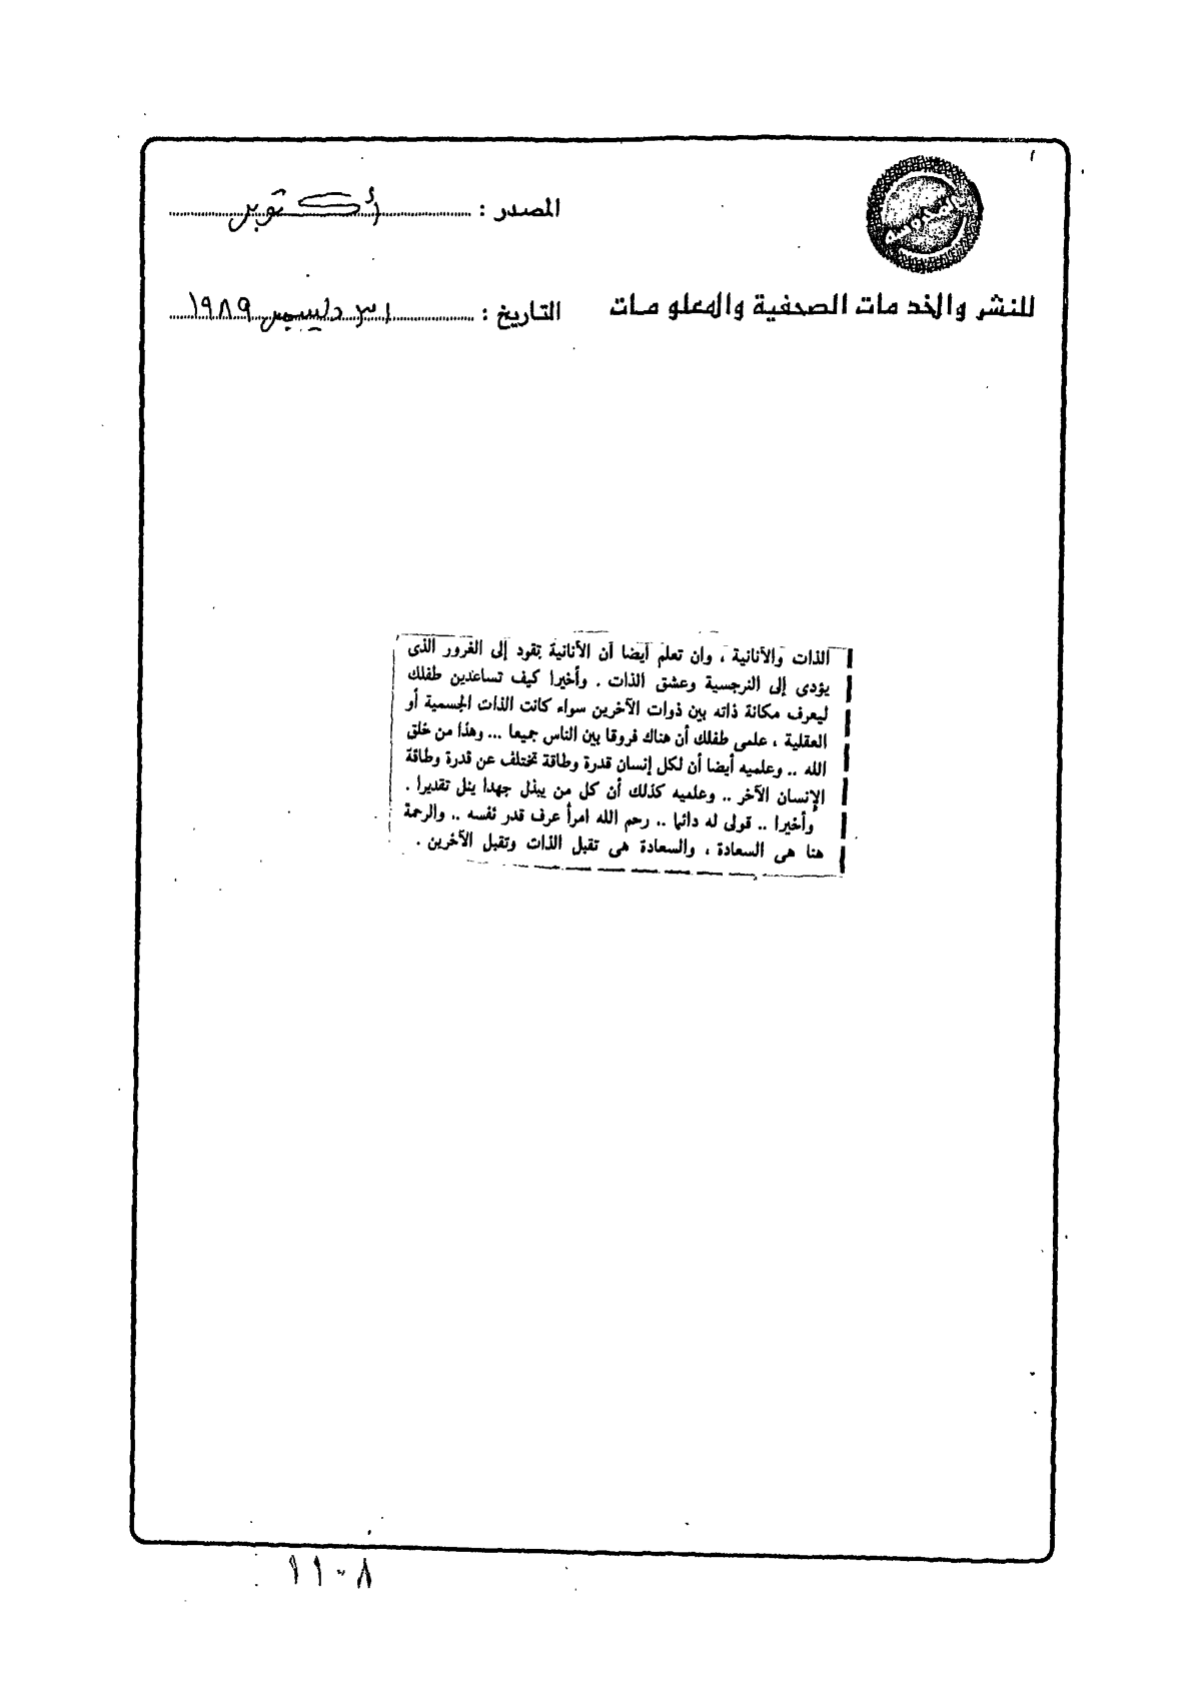 المصدر : أكتوبر
للنشر والخدمات الصحفية والمعلومات
التاريخ : ٣١ ديسمبر ١٩٨٩
الذات والأنانية ، وان تعلم أيضا أن الأنانية تقود إلى الغرور الذى
يؤدى إلى النرجسية وعشق الذات . وأخيرا كيف تساعدين طفلك
ليعرف مكانة ذاته بين ذوات الآخرين سواء كانت الذات الجسمية أو
العقلية ، علمى طفلك أن هناك فروقا بين الناس جميعا ... وهذا من خلق
الله .. وعلميه أيضا أن لكل إنسان قدرة وطاقة تختلف عن قدرة وطاقة
الإنسان الآخر .. وعلميه كذلك أن كل من يبذل جهدا ينل تقديرا .
وأخيرا .. قولى له دائما .. رحم الله امرأ عرف قدر نفسه .. والرحمة
هنا هى السعادة ، والسعادة هى تقبل الذات وتقبل الآخرين .